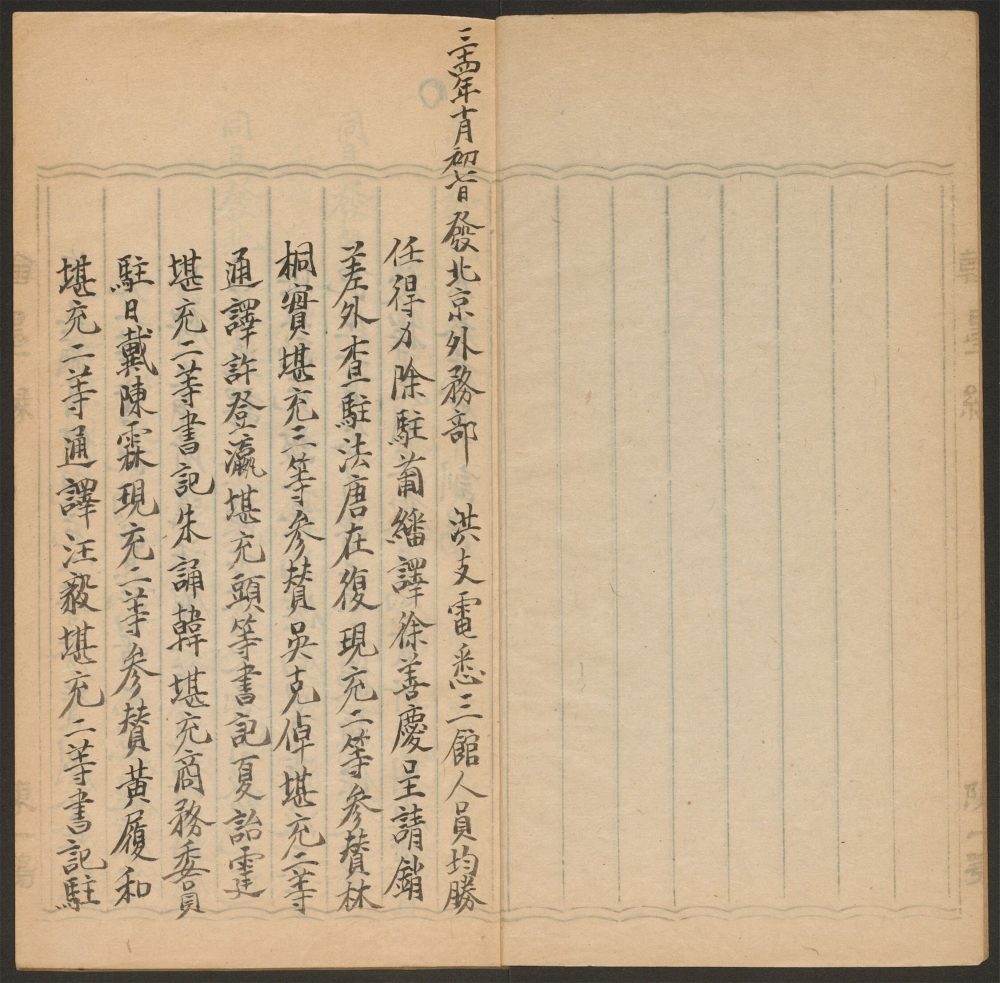 三十四年十月初七日發北京外務部　洪支電悉三館人員均勝
任得力除駐葡繙譯徐善慶呈請銷
差外查駐法唐在復現充二等參贊林
桐實堪充三等參贊吳克倬堪充二等
通譯許登瀛堪充頭等書記夏詒霆
堪充二等書記朱誦韓堪充商務委員
駐日戴陳霖現充二等參贊黃履和
堪充二等通譯汪毅堪充二等書記駐